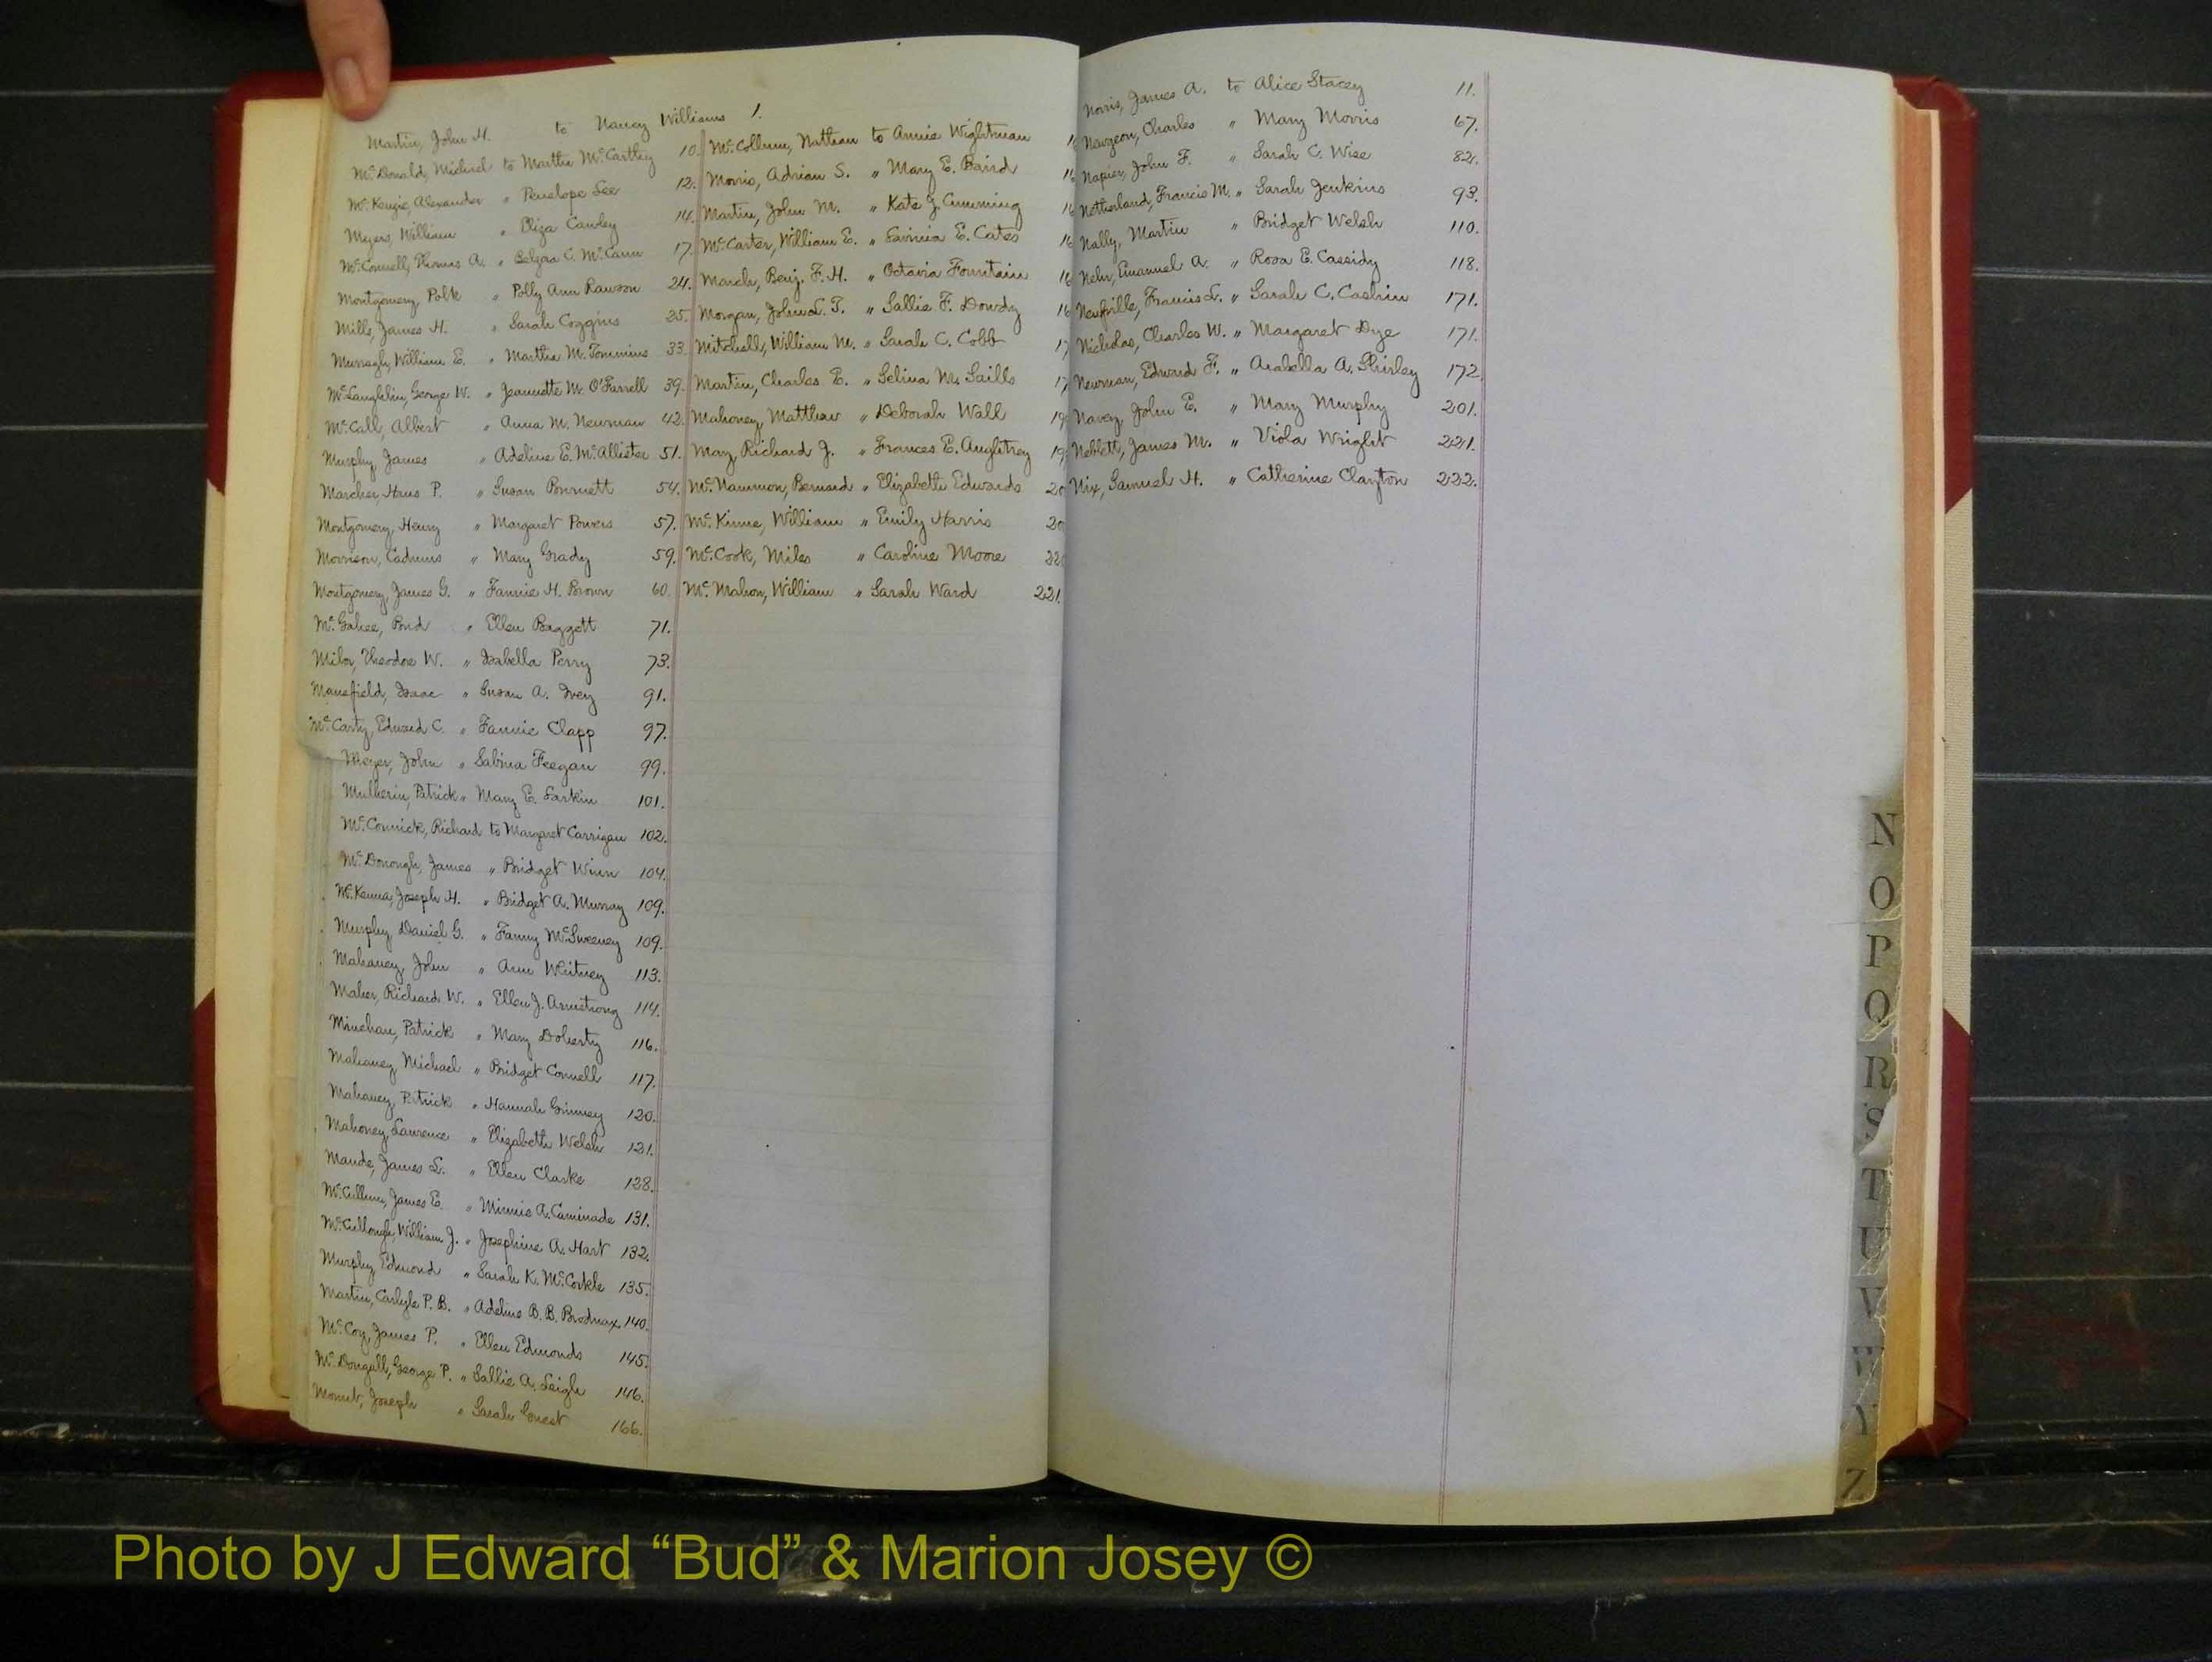 Martin, John H. to Nancy Williams 1.
McDonald, Michael to Martha McCarthey 10.
McKenzie, Alexander " Penelope Lee 12.
Myers, William " Eliza Cawley 14.
McConnell, Thomas A. " C. McCann 17.
Montgomery, Polk " Polly Ann Rawson 24.
Mills, James H. " Sarah Coggins 25.
William E. " Martha M. 33.
McLaughlin, George W. " Jeannette M. O'Farrell 39.
McCall, Albert " Anna M. Newman 42.
Murphy, James " Adeline E. McAllister 51.
Marcher, Hans P. " Susan Burnett 54.
Montgomery, Henry " Margaret Powers 57.
Morrison, Cadmus " Mary Grady 59.
Montgomery, James G. " Fannie H. Brown 60.
McGahee, Bud " Ellen Baggett 71.
Milor, Theodore W. " Isabella Perry 73.
Manefield, Isaac " Susan A. Ivey 91.
McCarty, Edward C. " Fannie Clapp 97.
Meyer, John " Sabina Feegan 99.
Mulherin, Patrick " Mary E. Larkin 101.
McCormick, Richard to Margaret Carrigan 102.
McDonough, James " Bridget Winn 104.
McKenna, Joseph H. " Bridget A. Murray 109.
Murphy, Daniel G. " Fanny McSweeney 109.
Mahaney, John " Ann Whitney 113.
Maher, Richard W. " Ellen J. Armstrong 114.
Minehan, Patrick " Mary Doherty 116.
Mahaney, Michael " Bridget Connell 117.
Mahaney, Patrick " Hannah Grinney 120.
Mahoney, Laurence " Elizabeth Welsh 121.
Maude, James L. " Ellen Clarke 128.
McCullum, James E. " Minnie A. Caminade 131.
McCullough, William J. " Josephine A. Hart 132.
Murphy, Edmond " Sarah K. McCorkle 135.
Martin, Carlyle P. B. " Adeline B. B. Brodnax 140.
McCoy, James P. " Ellen Edmonds 145.
McDougall, George P. " Sallie A. Leigh 146.
Joseph " Sarah Guest 166.
McCollum, Nathan to Annie Wightman 1
Morris, Adrian S. " Mary E. Baird 16
Martin, John M. " Kate J. Cumming 16
McCarter, William E. " E. Cates 16
March, Benj. F. H. " Octavia Fountain 16
Morgan, T. " Sallie F. Dowdy 16
Mitchell, William M. " Sarah C. Cobb 17
Martin, Charles E. " Selina M. Saills 17
Mahoney, Matthew " Deborah Wall 19
May, Richard J. " Frances E. Aughtrey 19
McNammon, Bernard " Elizabeth Edwards 20
McKinne, William " Emily Harris 20
McCook, Miles " Caroline Moore 22
McMahon, William " Sarah Ward 221.
Norris, James A. to Alice Stacey 11.
Newgeon, Charles " Mary Morris 67.
Napier, John F. " Sarah C. Wise 82.
Netherland, Francis M. " Sarah Jenkins 93.
Nally, Martin " Bridget Welsh 110.
Nehr, Emanuel A. " Rosa E. Cassidy 118.
Neufville, Francis L. " Sarah C. Cashin 171.
Nicholas, Charles W. " Margaret Dye 171.
Newman, Edward F. " Arabella A. Shirley 172.
Navey, John E. " Mary Murphy 201.
Neblett, James M. " Viola Wright 221.
Nix, Samuel H. " Catherine Clayton 222.
N
O
P
Q
R
S
T
U
V
W
Y
Z
Photo by J Edward “Bud” & Marion Josey ©